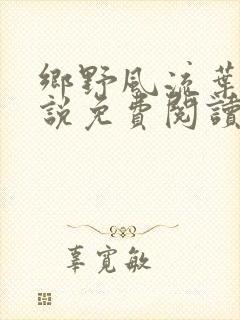 鄉野風流葉
說免費閱讀
辜寬敏